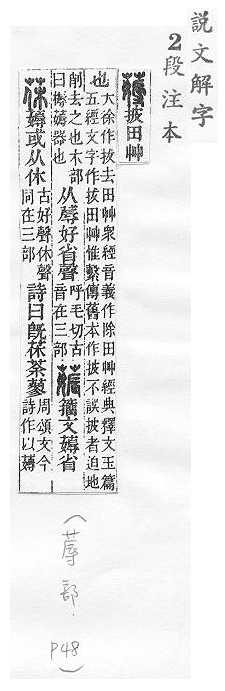 説文解字
2段注本
薅披田艸
也大徐作拔去田艸衆經音義作除田艸經典釋文玉篇
五經文字作拔田艸惟繫傳舊本作披不誤披者迫地
削去之也木部
曰槈薅器也从蓐好省聲呼毛切古
音在三部籒文薅省
茠薅或从休古好聲休聲
同在三部詩曰旣茠荼蓼周頌文今
詩作以薅
(蓐部. P48)